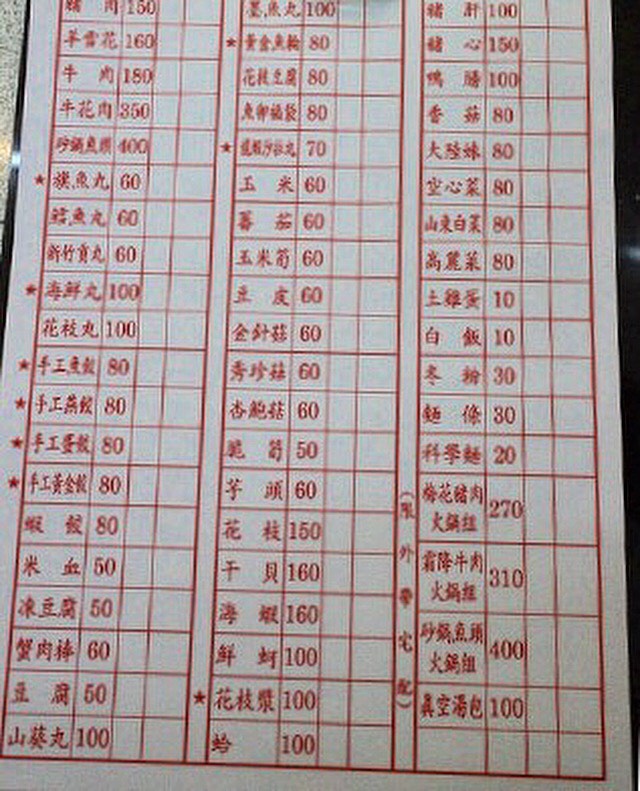 豬肉 150
羊雪花 160
牛肉 180
牛花肉 350
砂鍋魚頭 400
★ 旗魚丸 60
鱈魚丸 60
新竹貢丸 60
★ 海鮮丸 100
花枝丸 100
★ 手工魚餃 80
★ 手工燕餃 80
★ 手工蛋餃 80
★ 手工黃金餃 80
蝦餃 80
米血 50
凍豆腐 50
蟹肉棒 60
豆腐 50
山葵丸 100
墨魚丸 100
★ 黃金魚輪 80
花枝豆腐 80
魚卵福袋 80
★ 龍蝦沙拉丸 70
玉米 60
蕃茄 60
玉米筍 60
豆皮 60
金針菇 60
秀珍菇 60
杏鮑菇 60
脆筍 50
芋頭 60
花枝 150
干貝 160
海蝦 160
鮮蚵 100
★ 花枝漿 100
蛤 100
豬肝 100
豬心 150
鴨腸 100
香菇 80
大陸妹 80
空心菜 80
山東白菜 80
高麗菜 80
土雞蛋 10
白飯 10
冬粉 30
麵條 30
科學麵 20
(限外帶宅配)
梅花豬肉
火鍋組 270
霜降牛肉
火鍋組 310
砂鍋魚頭
火鍋組 400
真空湯包 100